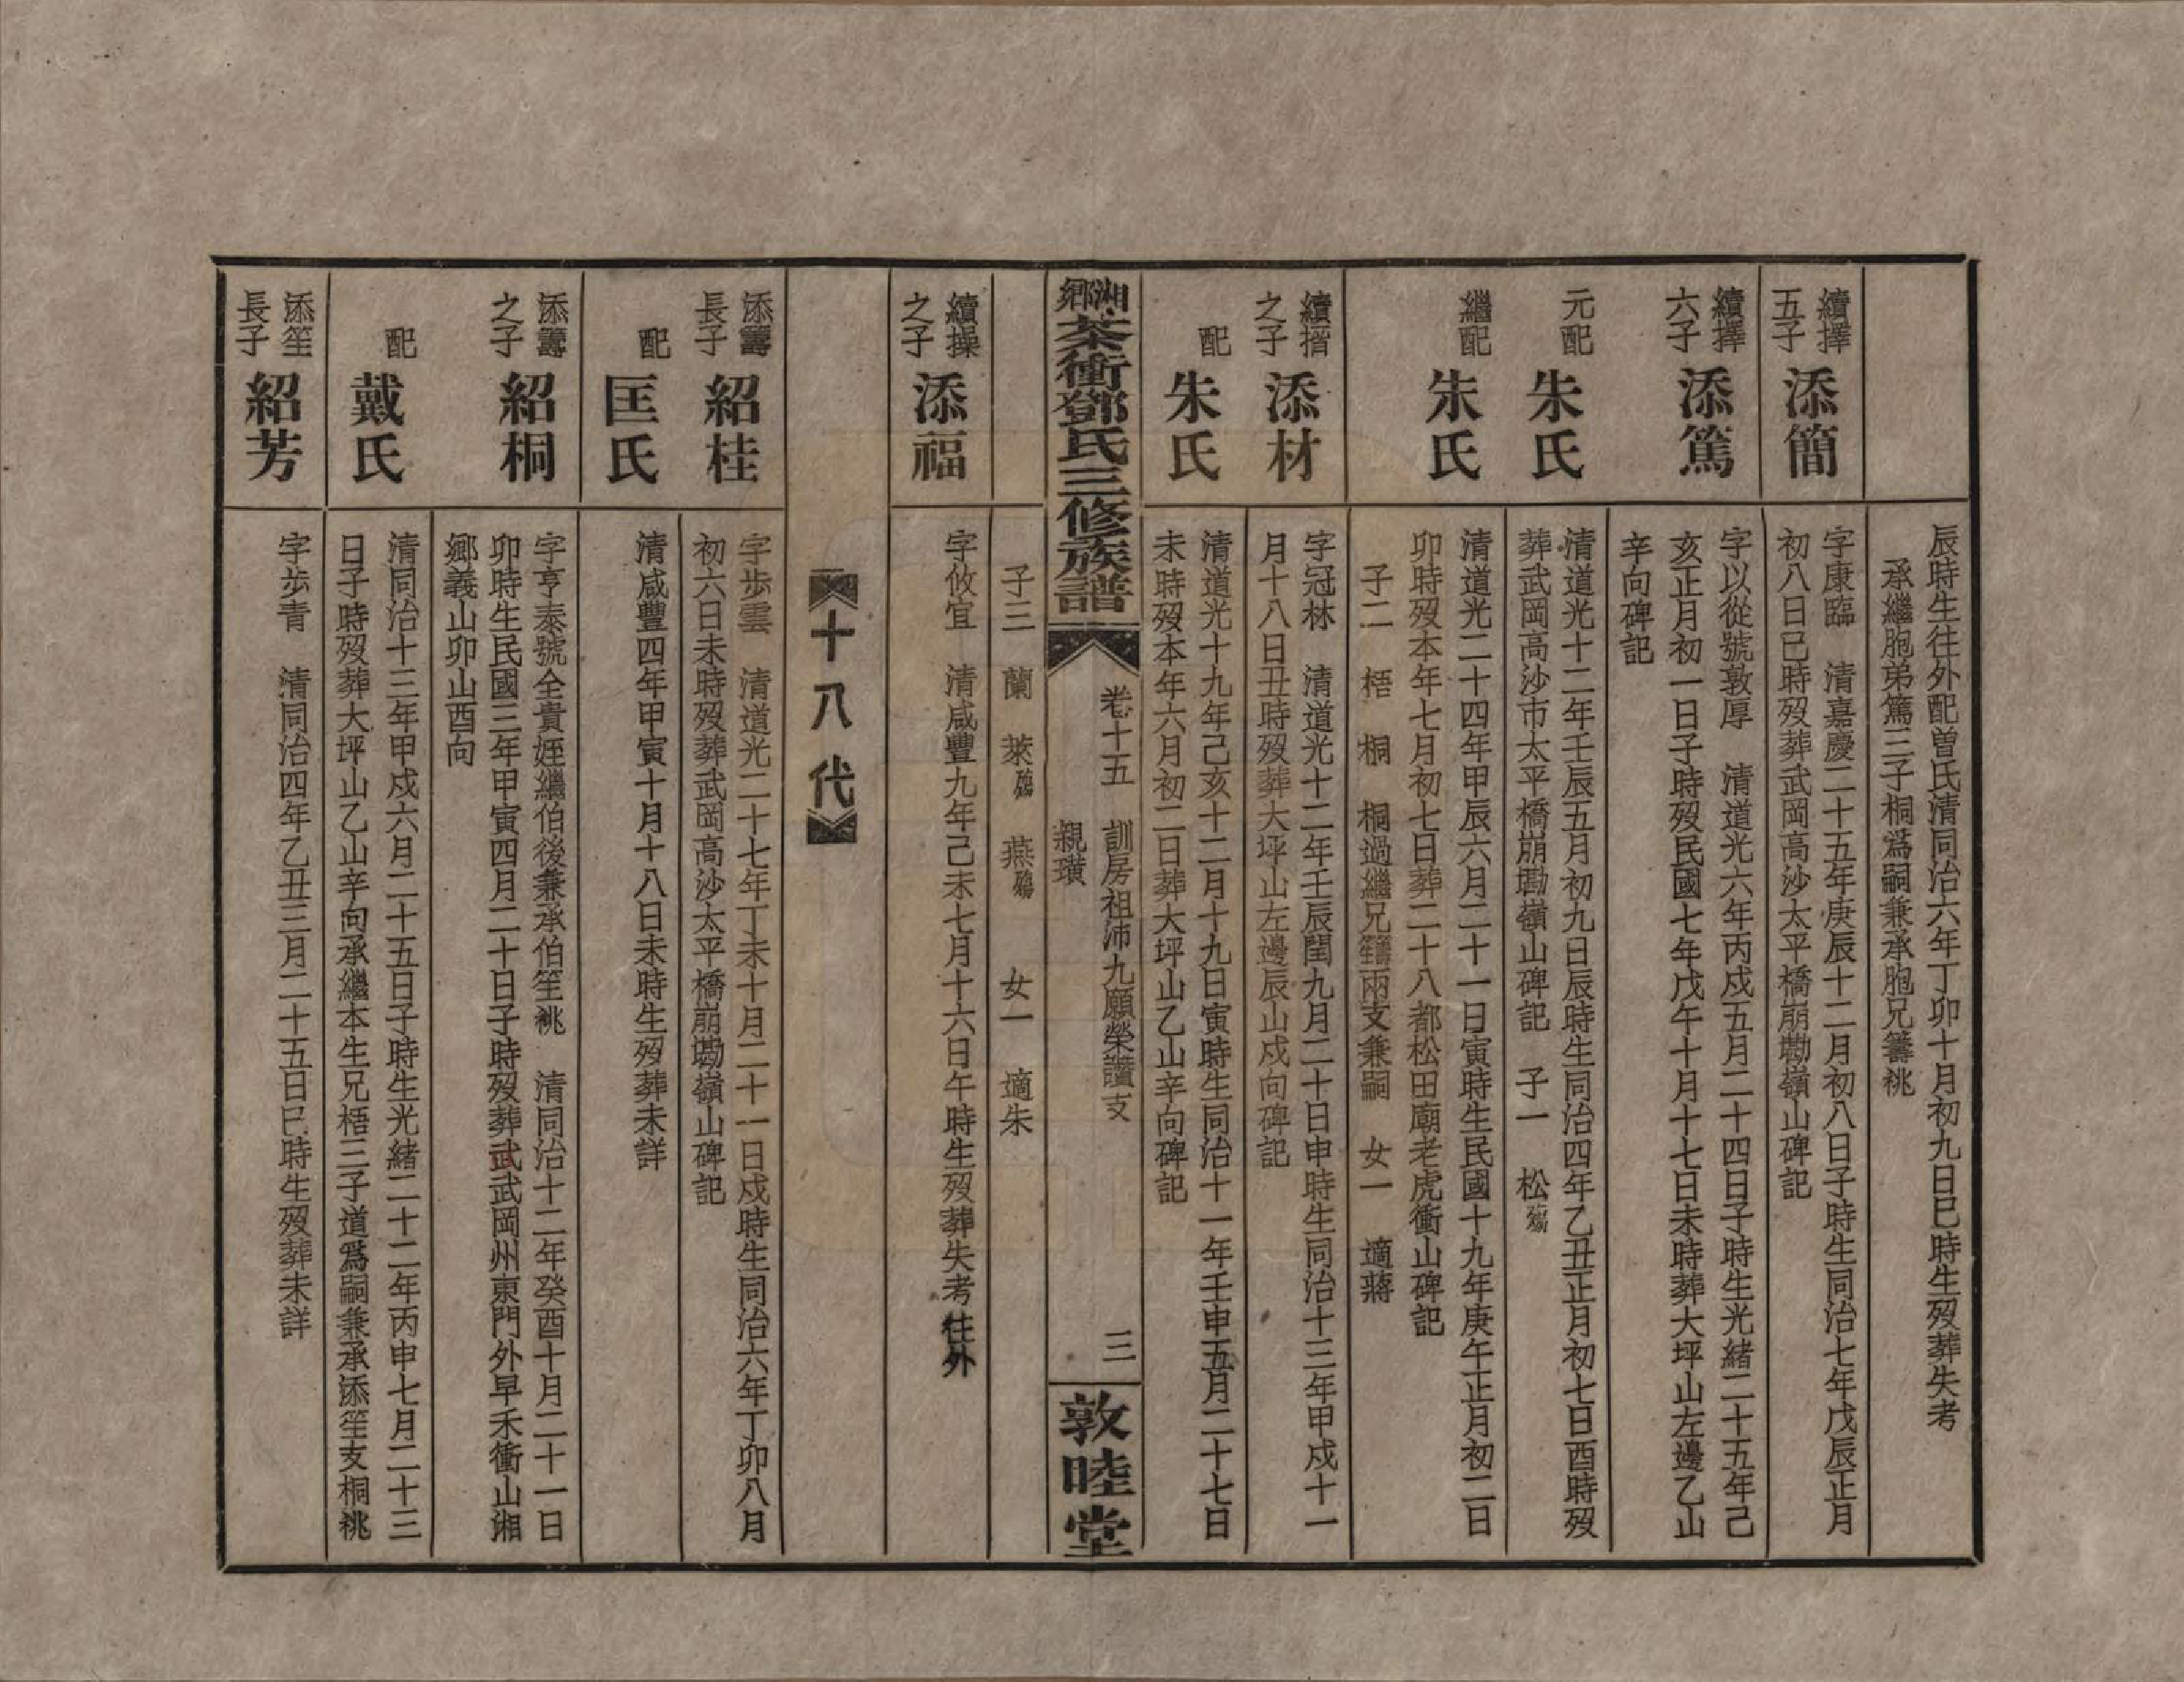 辰時生往外配曾氏清同治六年丁卯十月初九日巳時生歿葬失考
承繼胞弟篤三子桐爲嗣兼承胞兄籌祧
續擇五子
添簡
字康臨　清嘉慶二十五年庚辰十二月初八日子時生同治七年戊辰正月
初八日巳時歿葬武岡高沙太平橋崩磡嶺山碑記
續擇六子
添篤
字以從號敦厚　清道光六年丙戌五月二十四日子時生光緒二十五年己
亥正月初一日子時歿民國七年戊午十月十七日未時葬大坪山左邊乙山
辛向碑記
元配
朱氏
清道光十二年壬辰五月初九日辰時生同治四年乙丑正月初七日酉時歿
葬武岡高沙市太平橋崩磡嶺山碑記　子一　松殤
繼配
朱氏
清道光二十四年甲辰六月二十一日寅時生民國十九年庚午正月初二日
卯時歿本年七月初七日葬二十八都松田廟老虎衝山碑記
子二　梧　桐　桐過繼兄兩支兼嗣　女一　適蔣
續搢之子
添材
字冠林　清道光十二年壬辰閏九月二十日申時生同治十三年甲戌十一
月十八日丑時歿葬大坪山左邊辰山戍向碑記
配
朱氏
清道光十九年己亥十二月十九日寅時生同治十一年壬申五月二十七日
未時歿本年六月初二日葬大坪山乙山辛向碑記
湘鄉茶衝鄧氏三修族譜
卷十五　訓房祖沛九願榮讚支
親璜
三
敦睦堂
子三　蘭　萊殤　燕殤　女一　適朱
續操之子
添福
字攸宜　清咸豐九年己未七月十六日午時生歿葬失考往外
十八代
添籌長子
紹桂
字步雲　清道光二十七年丁未十月二十一日戌時生同治六年丁卯八月
初六日未時歿葬武岡高沙太平橋崩磡嶺山碑記
配
匡氏
清咸豐四年甲寅十月十八日未時生歿葬未詳
添籌之子
紹桐
字亨泰號全貴姪繼伯後兼承伯笙祧　清同治十二年癸酉十月二十一日
卯時生民國三年甲寅四月二十日子時歿葬武武岡州東門外早禾衝山湘
鄉義山卯山酉向
配
戴氏
清同治十三年甲戍六月二十五日子時生光緒二十二年丙申七月二十三
日子時歿葬大坪山乙山辛向承繼本生兄梧三子道爲嗣兼承添笙支桐祧
添笙長子
紹芳
字步青　清同治四年乙丑三月二十五日巳時生歿葬未詳